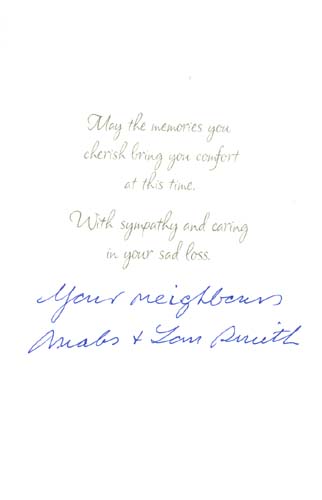 May the memories you
cherish bring you comfort
at this time.
With sympathy and caring
in your sad loss.
Your neighbours
+ Smith